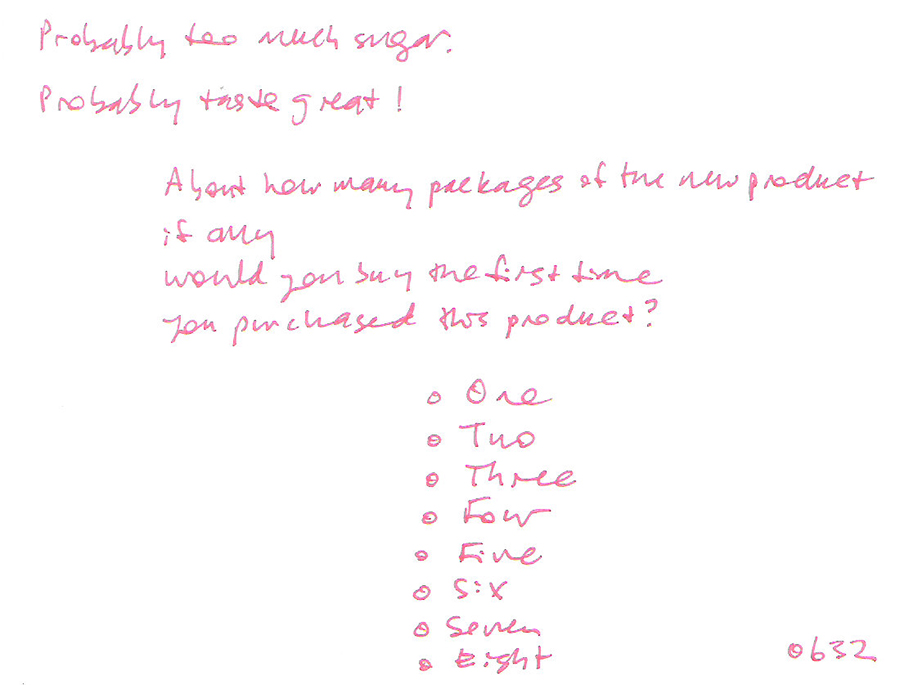 Probably too much sugar.
Probably taste great!
About how many packages of the new product
if any
would you buy the first time
you purchased this product?
o One
o Two
o Three
o Four
o Five
o Six
o Seven
o Eight
0632